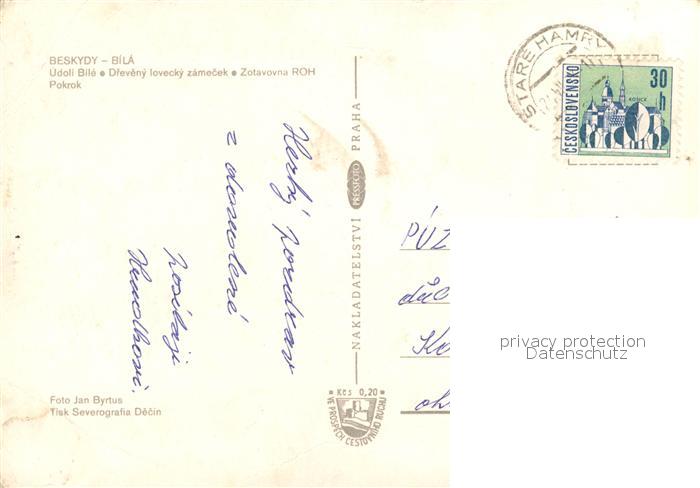 BESKYDY – BÍLÁ
Údolí Bílé ● Dřevěný lovecký zámeček ● Zotavovna ROH
Pokrok
Hezký pozdrav
z dovolené
posílají
Foto Jan Byrtus
Tisk Severografia Děčín
NAKLADATELSTVÍ PRESSFOTO PRAHA
Kčs 0,20
VE PROSPĚCH CESTOVNÍHO RUCHU
STARÉ HAMRY
ČESKOSLOVENSKO
30 h
KOŠICE
privacy protection
Datenschutz